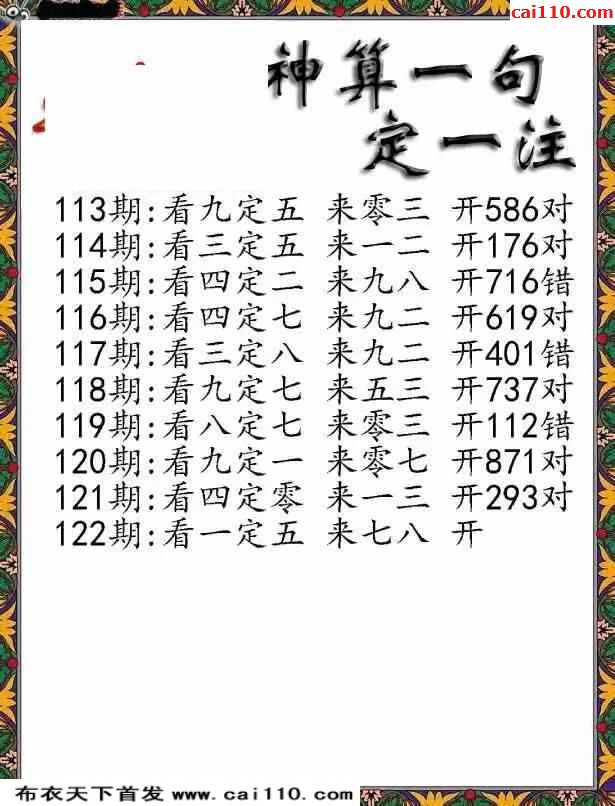 cai110.com
神算一句
定一注
113期:看九定五 来零三 开586对
114期:看三定五 来一二 开176对
115期:看四定二 来九八 开716错
116期:看四定七 来九二 开619对
117期:看三定八 来九二 开401错
118期:看九定七 来五三 开737对
119期:看八定七 来零三 开112错
120期:看九定一 来零七 开871对
121期:看四定零 来一三 开293对
122期:看一定五 来七八 开
布衣天下首发 www.cai110.com